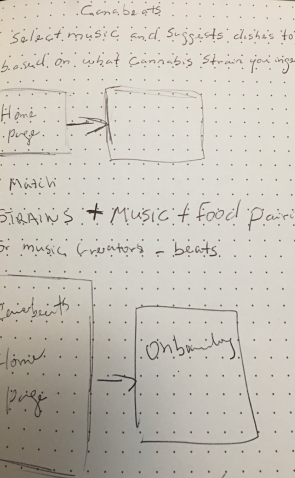 Canabeats
Select music and suggests dishes to
based on what Cannabis Strain you inge
Home
page
Match
STRAINS + Music + Food pairi
or music creators - beats.
Home
page
Onboarding